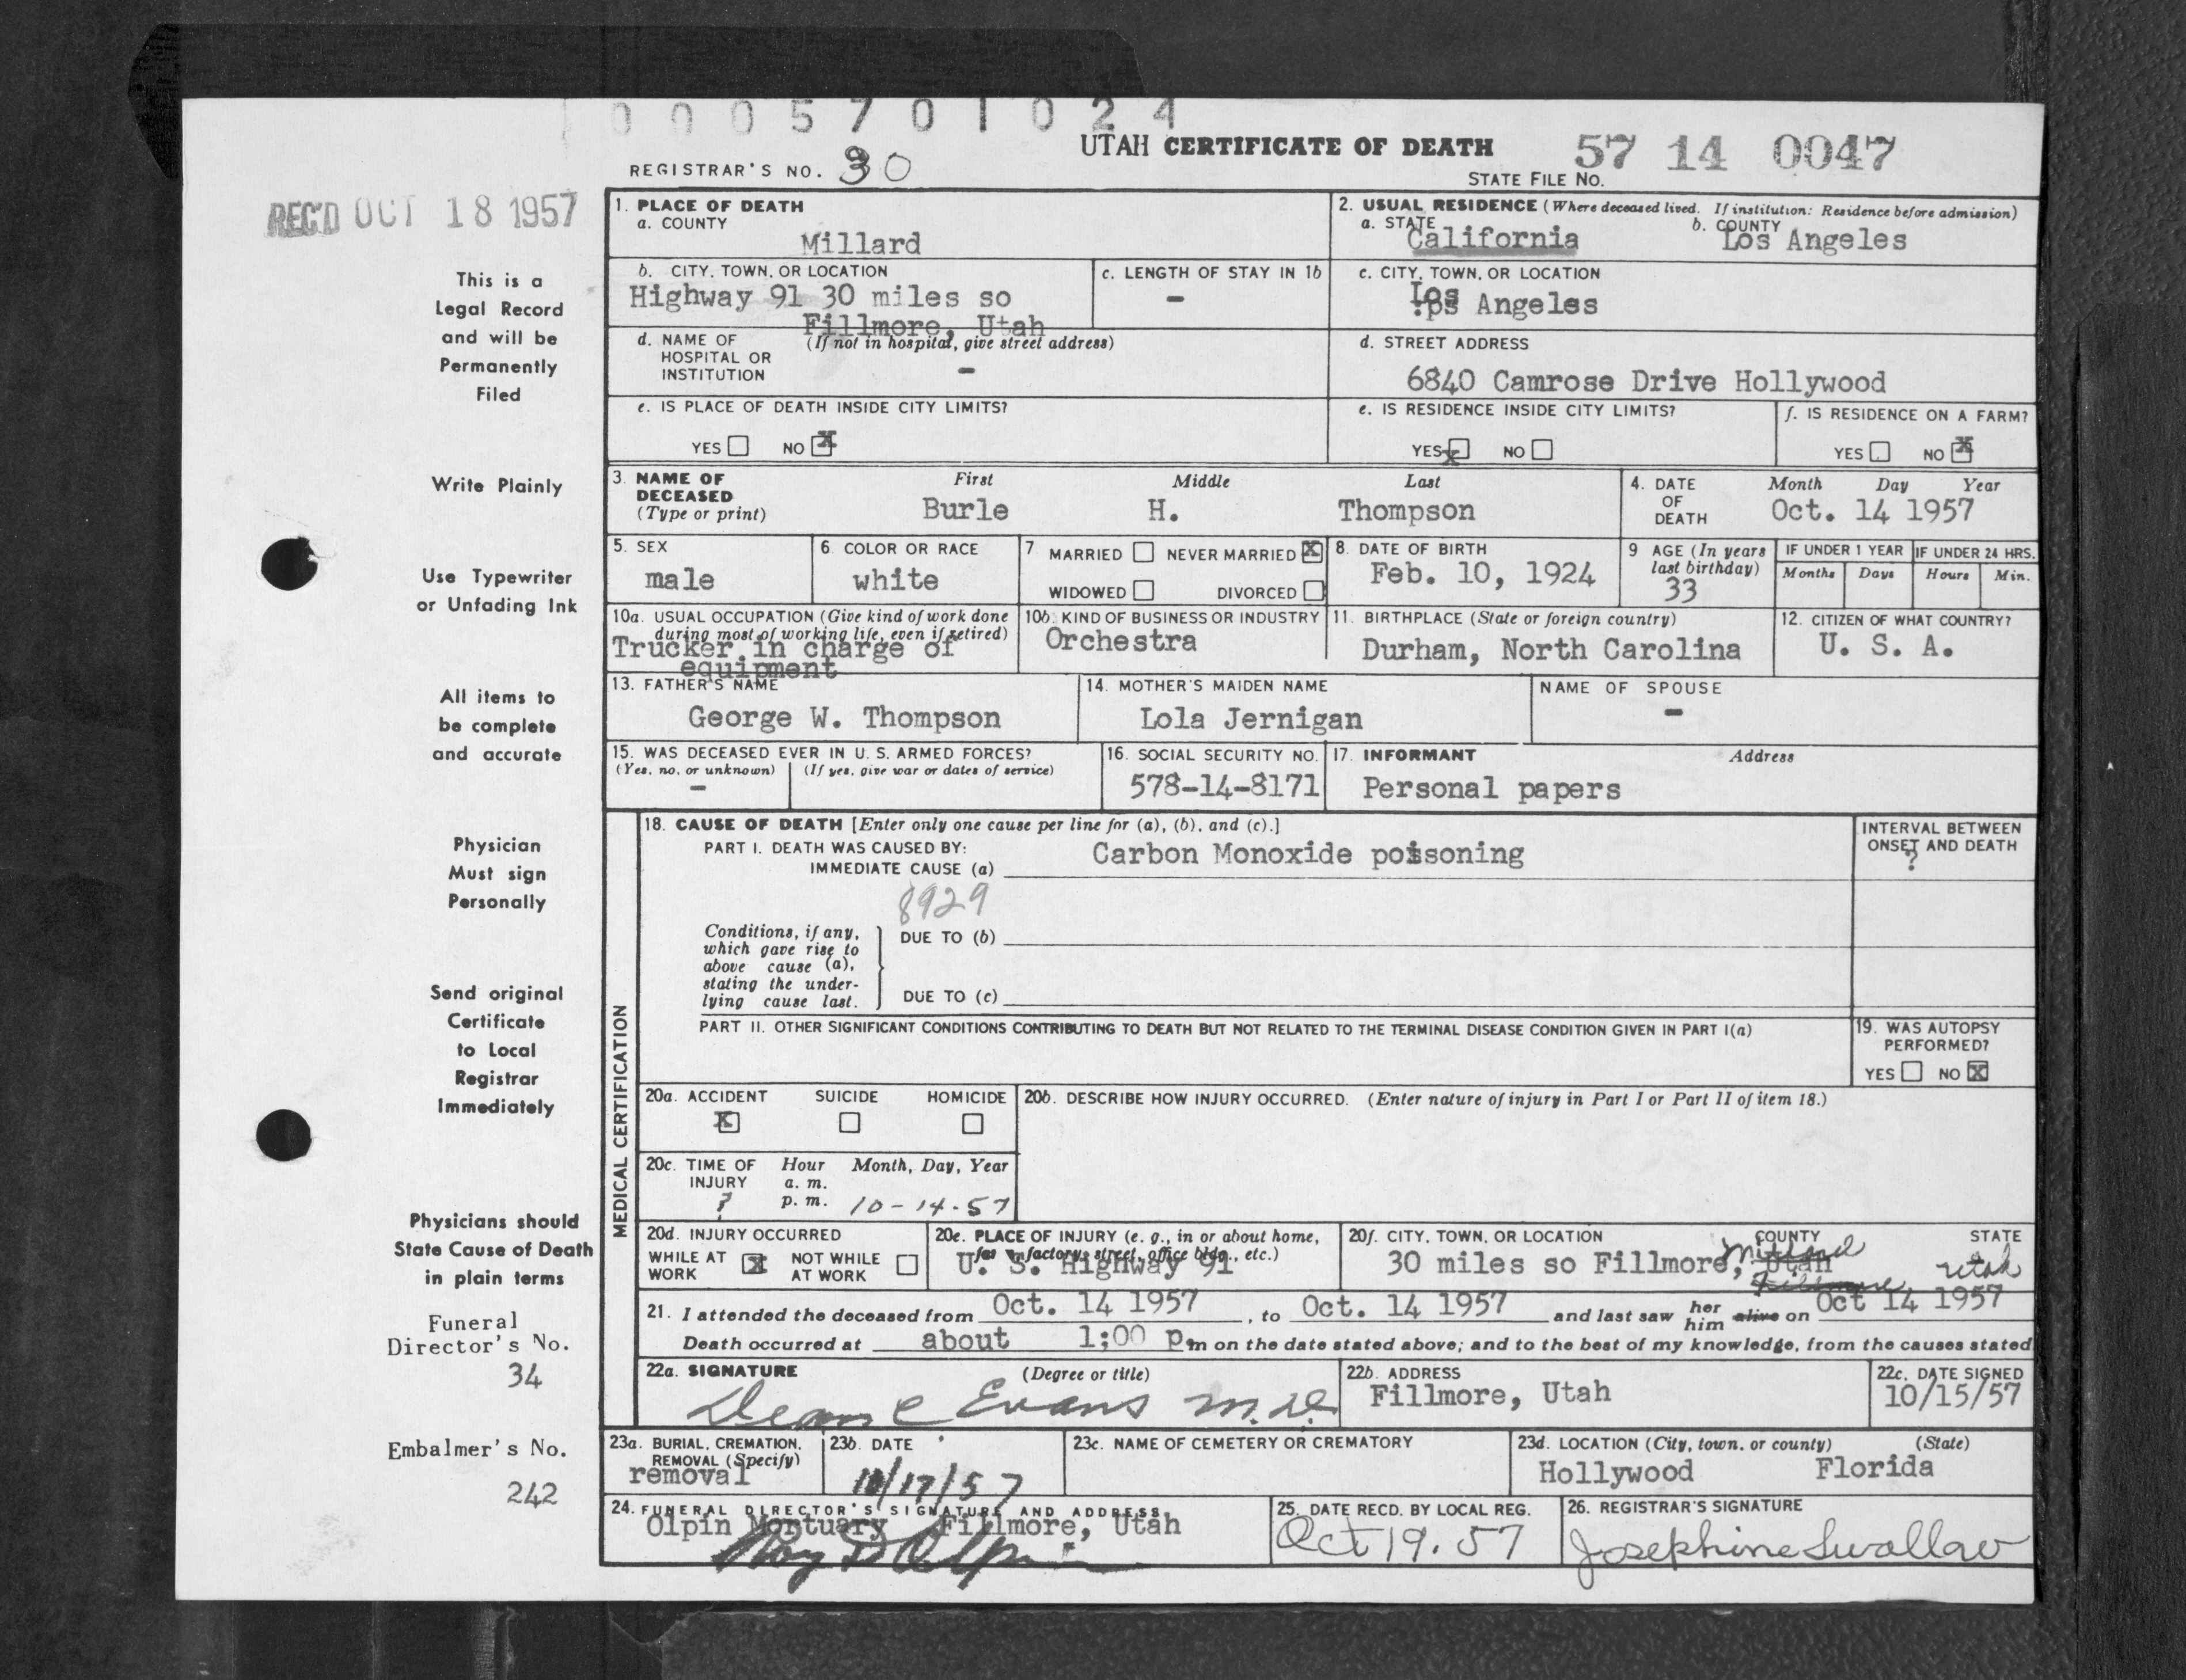 0 0 0 5 7 0 1 0 2 4
UTAH CERTIFICATE OF DEATH
57 14 0047
REGISTRAR'S NO. 30
STATE FILE NO.
REC'D OCT 18 1957
This is a
Legal Record
and will be
Permanently
Filed
Write Plainly
Use Typewriter
or Unfading Ink
All items to
be complete
and accurate
Physician
Must sign
Personally
Send original
Certificate
to Local
Registrar
Immediately
Physicians should
State Cause of Death
in plain terms
Funeral
Director's No.
34
Embalmer's No.
242
1. PLACE OF DEATH
a. COUNTY
Millard
2. USUAL RESIDENCE (Where deceased lived. If institution: Residence before admission)
a. STATE California b. COUNTY Los Angeles
b. CITY, TOWN, OR LOCATION
Highway 91 30 miles so
Fillmore, Utah
c. LENGTH OF STAY IN 1b
-
c. CITY, TOWN, OR LOCATION
Los Angeles
d. NAME OF (If not in hospital, give street address)
HOSPITAL OR
INSTITUTION -
d. STREET ADDRESS
6840 Camrose Drive Hollywood
e. IS PLACE OF DEATH INSIDE CITY LIMITS?
YES NO X
e. IS RESIDENCE INSIDE CITY LIMITS?
YES X NO
f. IS RESIDENCE ON A FARM?
YES NO X
3. NAME OF DECEASED (Type or print)
First Middle Last
Burle H. Thompson
4. DATE OF DEATH
Month Day Year
Oct. 14 1957
5. SEX
male
6. COLOR OR RACE
white
7. MARRIED NEVER MARRIED X
WIDOWED DIVORCED
8. DATE OF BIRTH
Feb. 10, 1924
9 AGE (In years last birthday)
33
IF UNDER 1 YEAR
Months Days
IF UNDER 24 HRS.
Hours Min.
10a. USUAL OCCUPATION (Give kind of work done
during most of working life, even if retired)
Trucker in charge of
equipment
10b. KIND OF BUSINESS OR INDUSTRY
Orchestra
11. BIRTHPLACE (State or foreign country)
Durham, North Carolina
12. CITIZEN OF WHAT COUNTRY?
U. S. A.
13. FATHER'S NAME
George W. Thompson
14. MOTHER'S MAIDEN NAME
Lola Jernigan
NAME OF SPOUSE
-
15. WAS DECEASED EVER IN U. S. ARMED FORCES?
(Yes, no, or unknown) (If yes, give war or dates of service)
-
16. SOCIAL SECURITY NO.
578-14-8171
17. INFORMANT Address
Personal papers
MEDICAL CERTIFICATION
18. CAUSE OF DEATH [Enter only one cause per line for (a), (b), and (c).]
PART I. DEATH WAS CAUSED BY:
IMMEDIATE CAUSE (a) Carbon Monoxide poisoning
INTERVAL BETWEEN
ONSET AND DEATH
?
8929
Conditions, if any,
which gave rise to
above cause (a),
stating the under-
lying cause last.
DUE TO (b)
DUE TO (c)
PART II. OTHER SIGNIFICANT CONDITIONS CONTRIBUTING TO DEATH BUT NOT RELATED TO THE TERMINAL DISEASE CONDITION GIVEN IN PART I(a)
19. WAS AUTOPSY
PERFORMED?
YES NO X
20a. ACCIDENT SUICIDE HOMICIDE
X
20b. DESCRIBE HOW INJURY OCCURRED. (Enter nature of injury in Part I or Part II of item 18.)
20c. TIME OF Hour Month, Day, Year
INJURY a. m.
? p. m. 10-14-57
20d. INJURY OCCURRED
WHILE AT WORK X NOT WHILE AT WORK
20e. PLACE OF INJURY (e. g., in or about home,
farm, factory, street, office bldg., etc.)
U. S. Highway 91
20f. CITY, TOWN, OR LOCATION COUNTY STATE
30 miles so Fillmore, Utah Millard Fillmore Utah
21. I attended the deceased from Oct. 14 1957, to Oct. 14 1957 and last saw her him alive on Oct 14 1957
Death occurred at about 1:00 p.m on the date stated above; and to the best of my knowledge, from the causes stated
22a. SIGNATURE (Degree or title)
Dean C Evans M.D.
22b. ADDRESS
Fillmore, Utah
22c. DATE SIGNED
10/15/57
23a. BURIAL, CREMATION,
REMOVAL (Specify)
removal
23b. DATE
10/17/57
23c. NAME OF CEMETERY OR CREMATORY
23d. LOCATION (City, town, or county) (State)
Hollywood Florida
24. FUNERAL DIRECTOR'S SIGNATURE AND ADDRESS
Olpin Mortuary Fillmore, Utah
Roy D Olpin
25. DATE RECD. BY LOCAL REG.
Oct 19. 57
26. REGISTRAR'S SIGNATURE
Josephine Swallow